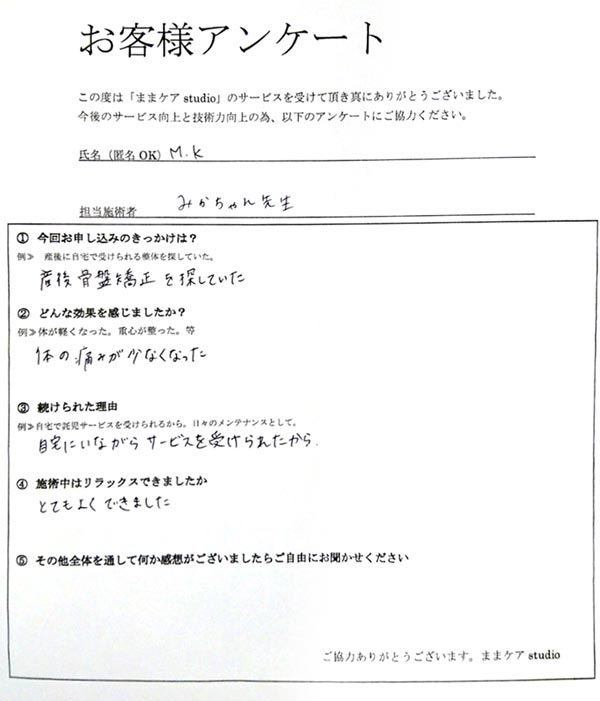 お客様アンケート
この度は「ままケア studio」のサービスを受けて頂き真にありがとうございました。
今後のサービス向上と技術力向上の為、以下のアンケートにご協力ください。
氏名（匿名 OK） M.K
担当施術者 みかちゃん先生
① 今回お申し込みのきっかけは？
例≫ 産後に自宅で受けられる整体を探していた。
産後骨盤矯正を探していた
② どんな効果を感じましたか？
例≫体が軽くなった。重心が整った。等
体の痛みが少なくなった
③ 続けられた理由
例≫自宅で託児サービスを受けられるから。日々のメンテナンスとして。
自宅にいながらサービスを受けられたから.
④ 施術中はリラックスできましたか
とてもよくできました
⑤ その他全体を通して何か感想がございましたらご自由にお聞かせください
ご協力ありがとうございます。ままケア studio